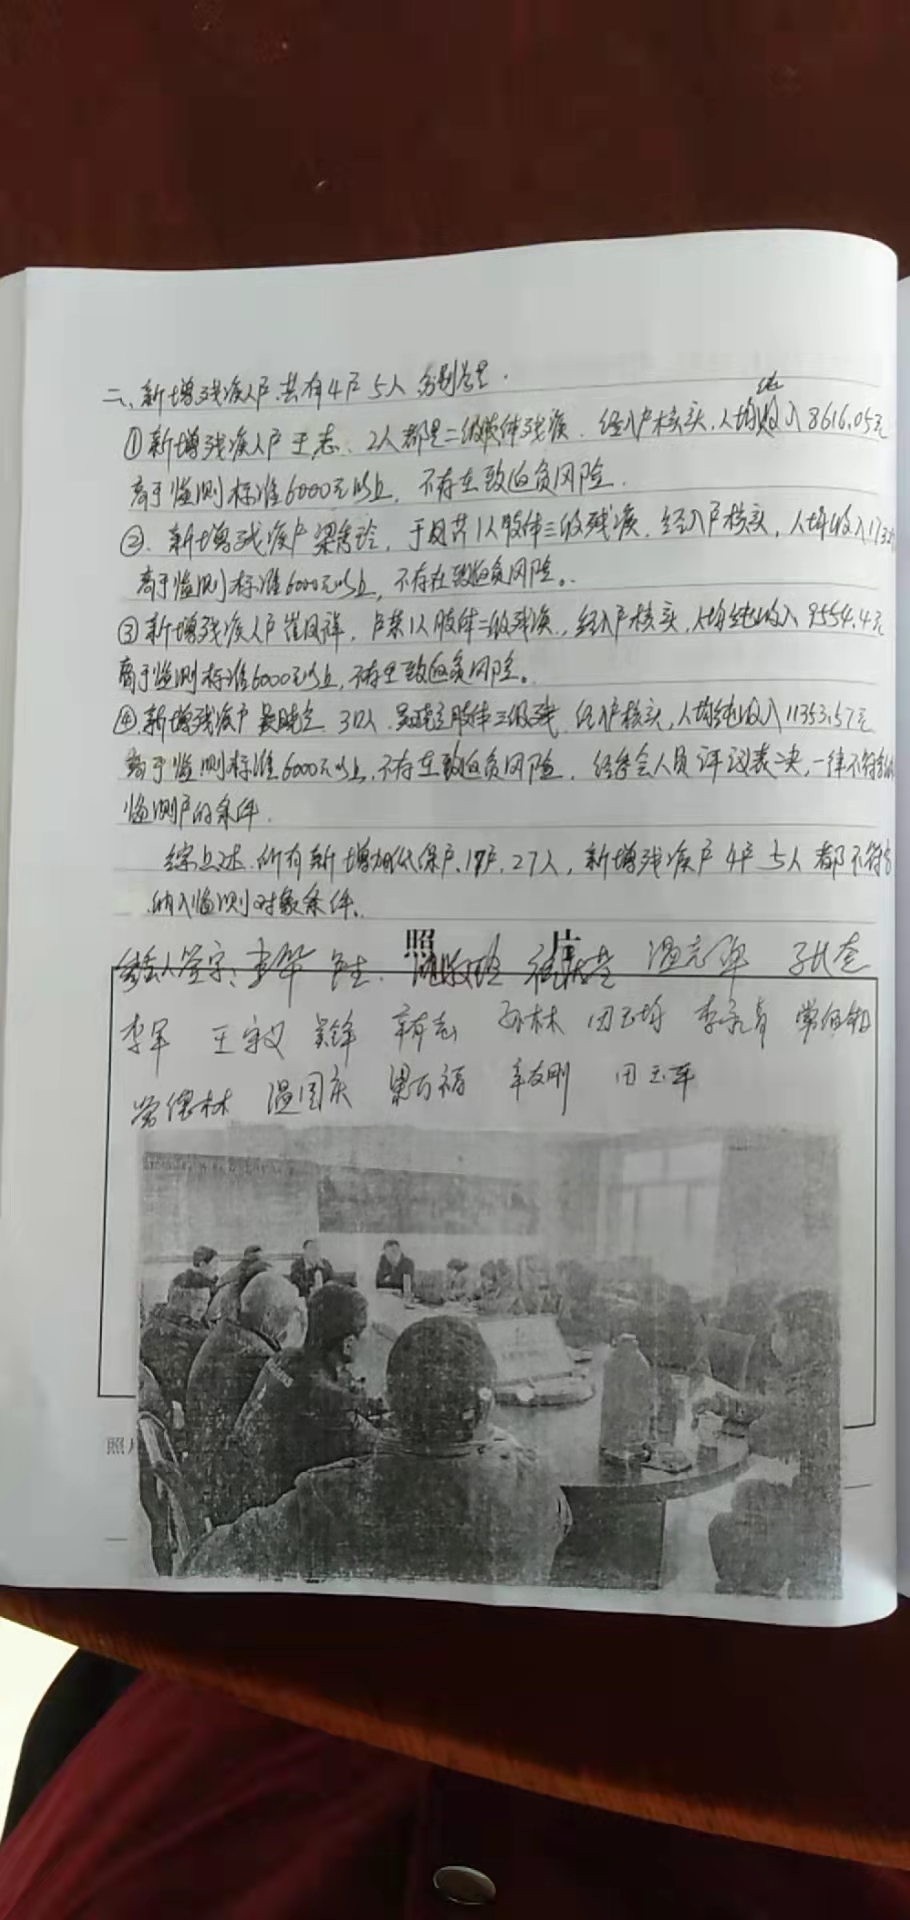 二、新增残疾人户.共有4户5人 分别是.
①新增残疾人户王志、2人都是二级肢体残疾.经入户核实,人均纯收入8616.05元
高于监测标准6000元以上,不存在致返贫风险.
②.新增残疾户梁秀玲,1人肢体三级残疾.经入户核实,人均收入
高于监测标准6000元以上,不存在致返贫风险。
③新增残疾人户崔凤祥,1人肢体二级残疾,经入户核实,人均纯收入9554.4元
高于监测标准6000元以上,不存在致返贫风险。
④.新增残疾户 3口人.肢体三级残.经入户核实,人均纯收入11353.57元
高于监测标准6000元以上,不存在致返贫风险.经参会人员评议表决,一律不符合
监测户的条件.
综上述.所有新增加低保户、户.27人,新增残疾户4户5人都不符合
纳入监测对象条件.
照 片
参会人签字: 温克军 张奎
李军 王守义 吴锋 孙林 田玉
常德林 温国庆 梁万福 辛友刚 田玉军
照片